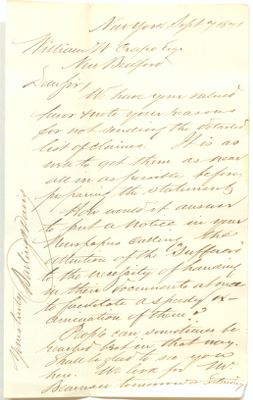 New York, Sept 7 1871
William W Crapo Esq
New Bedford
Dear Sir,
We have your valued
favor & note your reasons
for not sending the detailed
list of claims. It is as
well to get them as near
all in as possible before
preparing the statement
How would it answer
to put a notice in your
Newspapers calling the
attention of the "Sufferers"
to the necessity of handing
in their documents at once
to facilitate a speedy ex-
amination of them?
People can sometimes be
reached best in that way.
Shall be glad to see you
here. We look for Mr
tomorrow Saturday
Yours truly